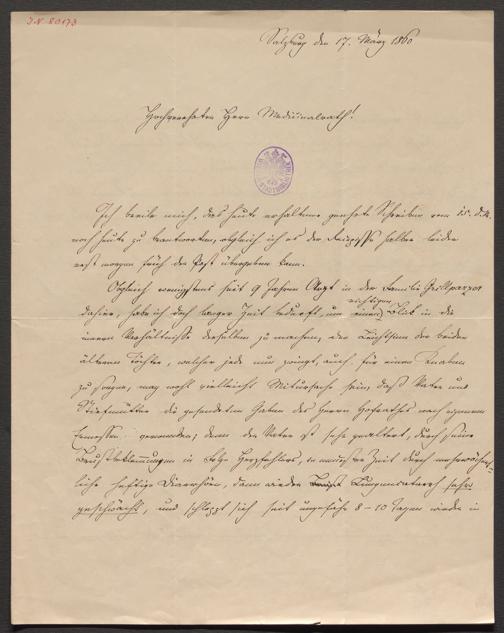 I.N. 80173
Salzburg den 17. März 1860
Hochverehrter Herr Medicinalrath!
Ich beeile mich, das heute erhaltene geehrte Schreiben vom 15. d. M.
noch heute zu beantworten, obgleich ich es der halber leider
erst morgen früh der Post übergeben kann.
Obgleich wenigstens seit 9 Jahren Arzt in der Familie Grillparzer
dahier, habe ich doch langer Zeit bedurft, um einen richtigen Blick in die
inneren Verhältnisse derselben zu machen, der Leichtsinn der beiden
älteren Töchter, welcher jede nun zwingt, auch für einen Knaben
zu sorgen, mag wohl vielleicht Mitursache sein, daß Vater und
Stiefmutter die gesendeten Gaben des Herrn Hofrathes nach eigenem
Ermessen verwenden; denn der Vater ist sehr gealtert, durch seine
Brustbeklemmungen in Folge Herzfehlers, in neuester Zeit durch mehrwöchent-
liche heftige Diarrhöen, dann wieder Lungencatarrh sehr
geschwächt, und schleppt sich seit ungefähr 8 – 10 Tagen wieder in